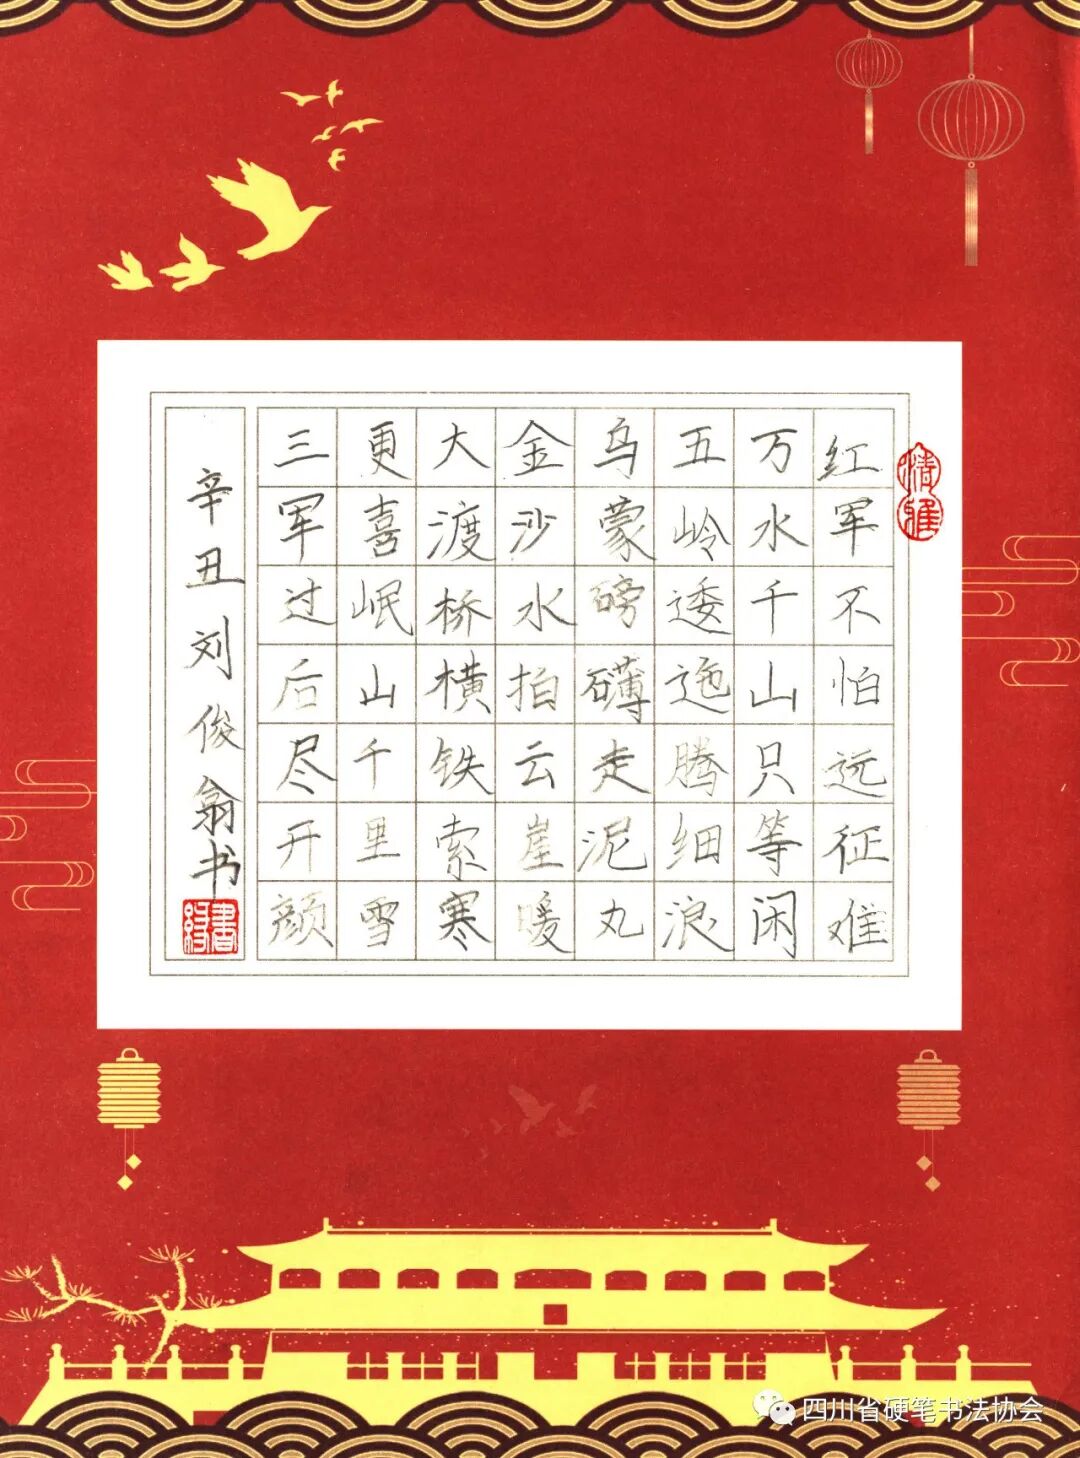 红军不怕远征难
万水千山只等闲
五岭逶迤腾细浪
乌蒙磅礴走泥丸
金沙水拍云崖暖
大渡桥横铁索寒
更喜岷山千里雪
三军过后尽开颜
辛丑刘俊翁书
四川省硬笔书法协会